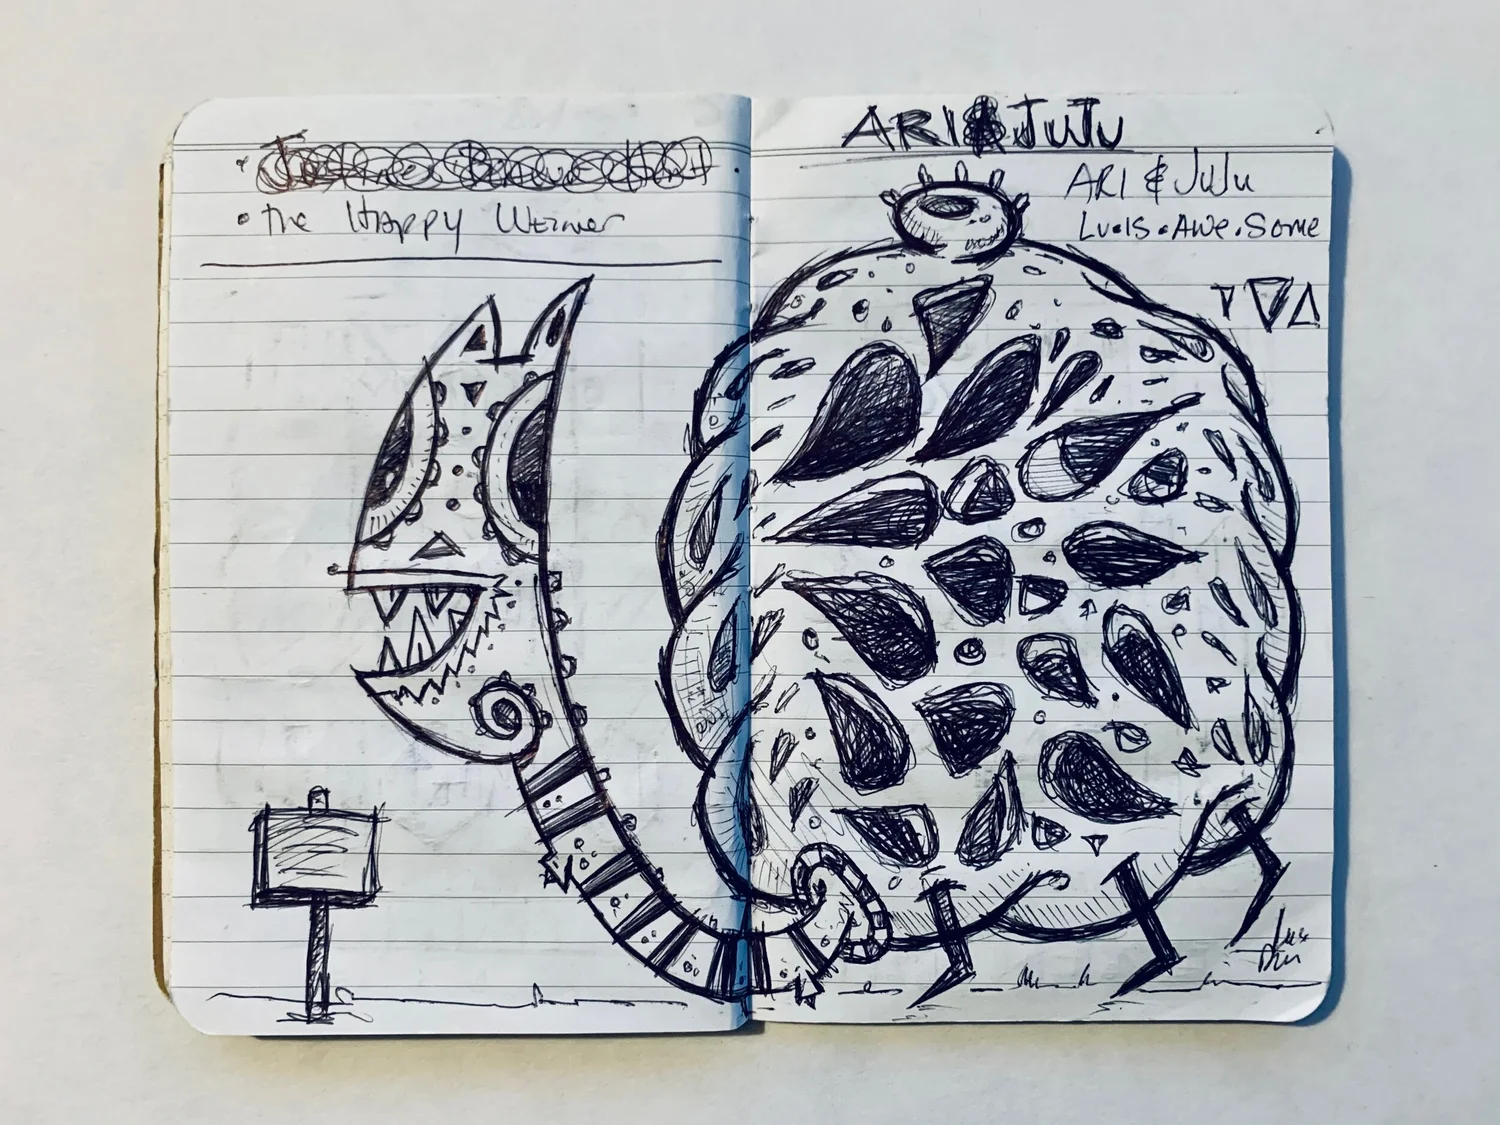 • The Happy Weiner
ARI & JuJu
ARI & JuJu
Lu•is•Awe•Some